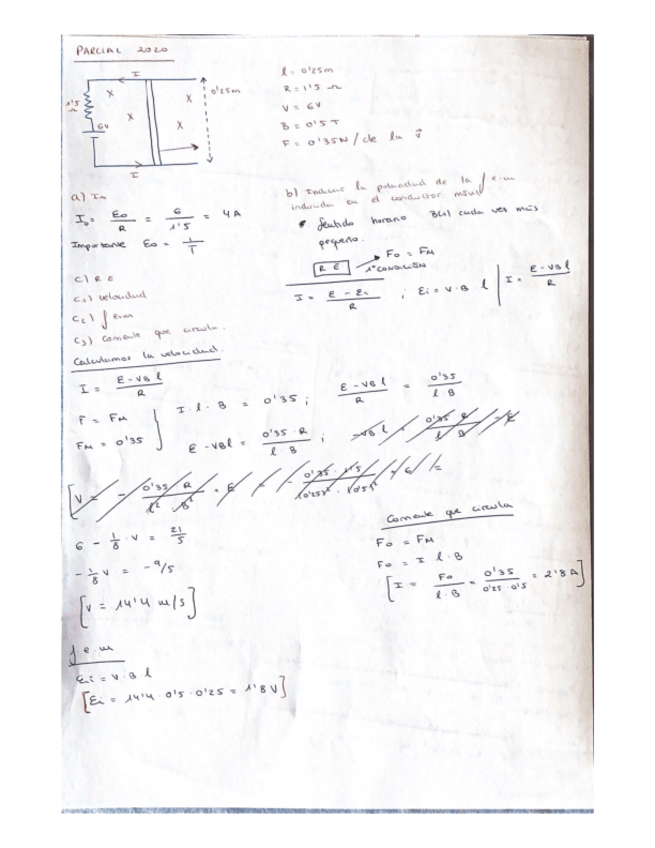 PARCIAL 2020
I
x x
x x
1'5 Ω
6V
0'25m
I
l = 0'25m
R = 1'5 Ω
V = 6V
B = 0'5 T
F = 0'35N / de la v⃗
a) I₀
I₀ = E₀/R = 6/1'5 = 4 A
Importante E₀ = 1/T
b) Indicar la polaridad de la f e.m
inducida en el conductor móvil
Sentido horario
cada vez más
pequeño.
R E → F₀ = FM
1ª CONDICIÓN
I = (E - Ei)/R ; Ei = V·B·l | I = (E - VBl)/R
c) R E
c₁) velocidad
c₂) f em
c₃) Corriente que circula.
Calculamos la velocidad.
I = (E - VBl)/R
F = FM
FM = 0'35
I·l·B = 0'35 ; (E - VBl)/R = 0'35/(l·B)
E - VBl = (0'35·R)/(l·B) ;
6 - 1/8 · V = 21/5
- 1/8 V = -9/5
[V = 14'4 m/s]
Corriente que circula
F₀ = FM
F₀ = I·l·B
[I = F₀/(l·B) = 0'35/(0'25·0'5) = 2'8 A]
f e.m
Ei = V·B·l
[Ei = 14'4·0'5·0'25 = 1'8 V]